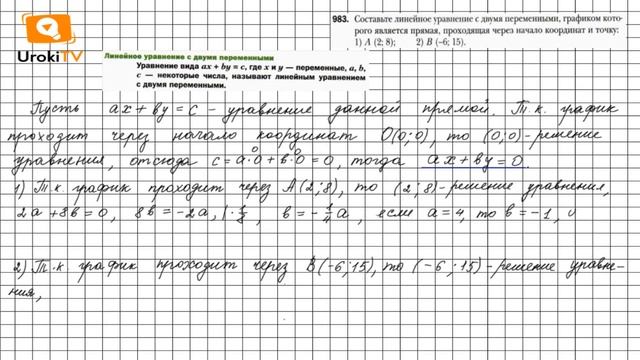 UrokiTV
983. Составьте линейное уравнение с двумя переменными, графиком кото-
рого является прямая, проходящая через начало координат и точку:
1) A (2; 8); 2) B (–6; 15).
Линейное уравнение с двумя переменными
Уравнение вида ax + by = c, где x и y — переменные, a, b,
c — некоторые числа, называют линейным уравнением
с двумя переменными.
Пусть ax + by = c – уравнение данной прямой. Т.к. график
проходит через начало координат O(0;0), то (0;0)-решение
уравнения, отсюда c = a·0 + b·0 = 0, тогда ax + by = 0.
1) Т.к. график проходит через A(2;8), то (2;8)-решение уравнения,
2a + 8b = 0, 8b = -2a, |·1/8, b = -1/4 a, если a = 4, то b = -1,
2) Т.к график проходит через B(-6;15), то (-6;15)-решение уравне-
ния,